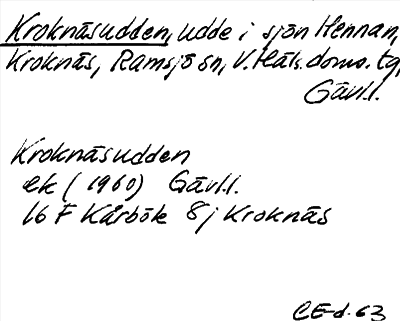 Kroknäsudden, udde i sjön Hennan,
Kroknäs, Ramsjö sn, V. Häls. doms. tg,
Gävl.l.
Kroknäsudden
ek (1960) Gävl.l.
16 F Kårböle 8j Kroknäs
CE-d. 63